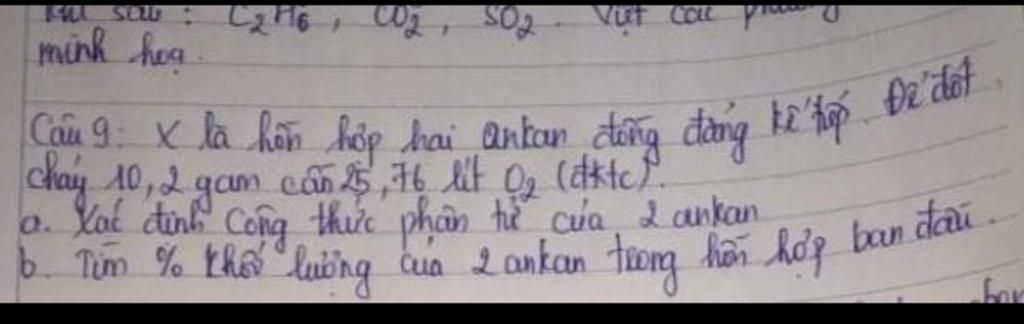 sau : C₂H₆, CO₂, SO₂. Viết các
minh hoạ.
Câu 9: X là hỗn hợp hai ankan đồng đẳng kế tiếp. Để đốt
cháy 10,2 gam cần 25,76 lít O₂ (đktc).
a. Xác định Công thức phân tử của 2 ankan
b. Tìm % khối lượng của 2 ankan trong hỗn hợp ban đầu.